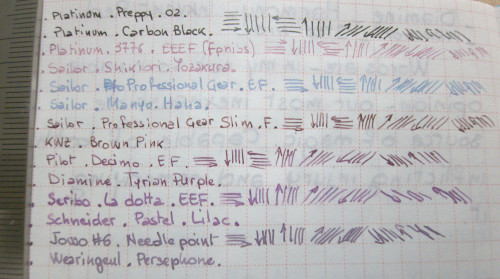 Platinum. Preppy. 02.
Platinum. Carbon Black.
Platinum. 3776. EEEF (Fpnibs)
Sailor. Shikiori. Yozakura.
Sailor. Professional Gear. EF.
Sailor. Manyo. Haha.
Sailor. Professional Gear Slim. F.
KWZ. Brown Pink
Pilot. Decimo. EF.
Diamine. Tyrian Purple.
Scribo. La dotta. EEF.
Schneider. Pastel. Lilac.
Jowo #6. Needlepoint
Wearingeul. Persephone.